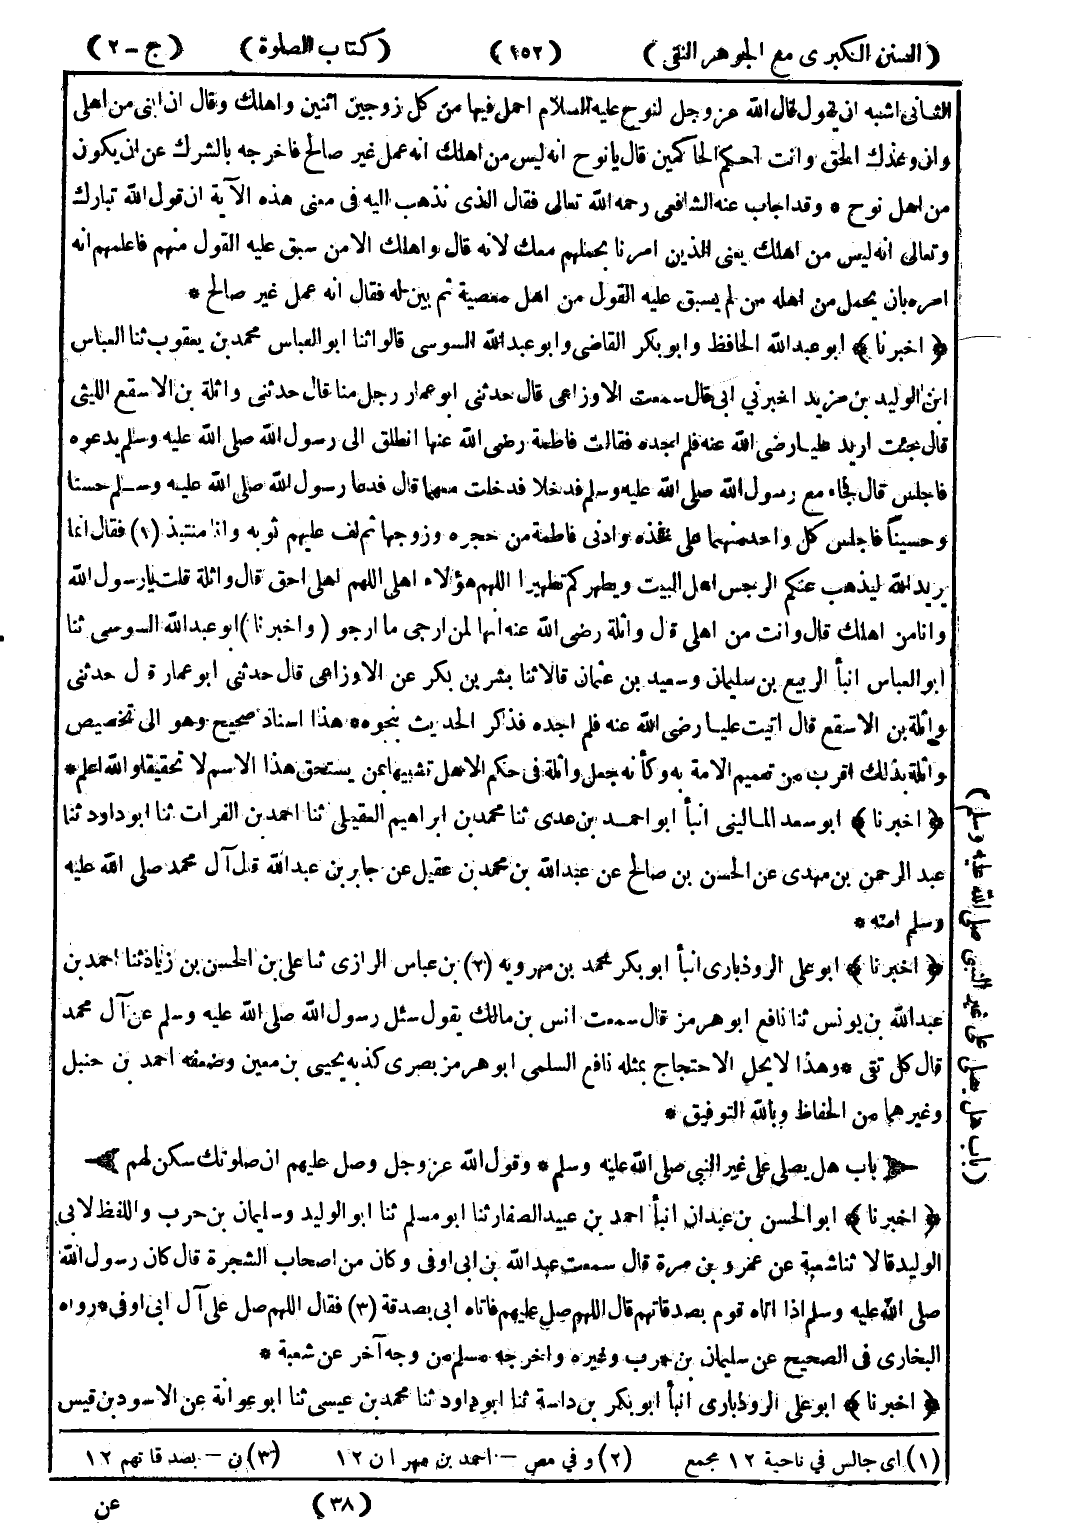 (السنن الكبرى مع الجوهر النقى) (١٥٢) (كتاب الصلوة) (ج-٢)
الثانى اشبه ان يقول قال الله عز وجل لنوح عليه السلام احمل فيها من كل زوجين اثنين واهلك وقال ان ابنى من اهلى
وان وعدك الحق وانت احكم الحاكمين قال يانوح انه ليس من اهلك انه عمل غير صالح فاخرجه بالشرك عن ان يكون
من اهل نوح * وقد اجاب عنه الشافعى رحمه الله تعالى فقال الذى نذهب اليه فى معنى هذه الآية ان قول الله تبارك
وتعالى انه ليس من اهلك يعنى الذين امرنا بحملهم معك لانه قال واهلك الا من سبق عليه القول منهم فاعلمهم انه
امره بان يحمل من اهله من لم يسبق عليه القول من اهل معصية ثم بين له فقال انه عمل غير صالح *
﴿ اخبرنا ﴾ ابو عبد الله الحافظ وابو بكر القاضى وابو عبد الله السوسى قالوا ثنا ابو العباس محمد بن يعقوب ثنا العباس
ابن الوليد بن مزيد اخبرني ابى قال سمعت الاوزاعى قال حدثنى ابو عمار رجل منا قال حدثنى واثلة بن الاسقع الليثى
قال جئت اريد عليا رضى الله عنه فلم اجده فقالت فاطمة رضى الله عنها انطلق الى رسول الله صلى الله عليه وسلم يدعوه
فاجلس قال فجاء مع رسول الله صلى الله عليه وسلم فدخلا فدخلت معهما قال فدعا رسول الله صلى الله عليه وسلم حسنا
وحسيناً فاجلس كل واحد منهما على فخذه وادنى فاطمة من حجره وزوجها ثم لف عليهم ثوبه وانا منتبذ (١) فقال انما
يريد الله ليذهب عنكم الرجس اهل البيت ويطهركم تطهيرا اللهم هؤلاء اهلى اللهم اهلى احق قال واثلة قلت يارسول الله
وانا من اهلك قال وانت من اهلى قال واثلة رضى الله عنه انها لمن ارجى ما ارجو (واخبرنا) ابو عبد الله السوسى ثنا
ابو العباس انبأ الربيع بن سليمان وسعيد بن عثمان قالا ثنا بشر بن بكر عن الاوزاعى قال حدثنى ابو عمار قال حدثنى
واثلة بن الاسقع قال اتيت عليا رضى الله عنه فلم اجده فذكر الحديث بنحوه * هذا اسناد صحيح وهو الى تخصيص
واثلة بذلك اقرب من تعميم الامة به وكأنه جعل واثلة فى حكم الاهل تشبيها بمن يستحق هذا الاسم لا تحقيقا والله اعلم *
﴿ اخبرنا ﴾ ابو سعد المالينى انبأ ابو احمد بن عدى ثنا محمد بن ابراهيم العقيلى ثنا احمد بن الفرات ثنا ابو داود ثنا
عبد الرحمن بن مهدى عن الحسن بن صالح عن عبد الله بن محمد بن عقيل عن جابر بن عبد الله قال آل محمد صلى الله عليه
وسلم امته *
﴿ اخبرنا ﴾ ابو على الروذبارى انبأ ابو بكر محمد بن مهرويه (٢) بن عباس الرازى ثنا على بن الحسن بن زياد ثنا احمد بن
عبد الله بن يونس ثنا نافع ابو هرمز قال سمعت انس بن مالك يقول سئل رسول الله صلى الله عليه وسلم عن آل محمد
قال كل تقى * وهذا لا يحل الاحتجاج بمثله نافع السلمى ابو هرمز بصرى كذبه يحيى بن معين وضعفه احمد بن حنبل
وغيرهما من الحفاظ وبالله التوفيق *
باب هل يصلى على غير النبى صلى الله عليه وسلم * وقول الله عز وجل وصل عليهم ان صلوتك سكن لهم
﴿ اخبرنا ﴾ ابو الحسن بن عبدان انبأ احمد بن عبيد الصفار ثنا ابو مسلم ثنا ابو الوليد وسليمان بن حرب واللفظ لابى
الوليد قالا ثنا شعبة عن عمرو بن مرة قال سمعت عبد الله بن ابى اوفى وكان من اصحاب الشجرة قال كان رسول الله
صلى الله عليه وسلم اذا اتاه قوم بصدقاتهم قال اللهم صل عليهم فاتاه ابى بصدقة (٣) فقال اللهم صل على آل ابى اوفى * رواه
البخارى فى الصحيح عن سليمان بن حرب وغيره واخرجه مسلم من وجه آخر عن شعبة *
﴿ اخبرنا ﴾ ابو على الروذبارى انبأ ابو بكر بن داسة ثنا ابو داود ثنا محمد بن عيسى ثنا ابو عوانة عن الاسود بن قيس
(١) اى جالس في ناحية ١٢ مجمع (٢) و في مص - احمد بن مهران ١٢ (٣) ن - بصدقاتهم ١٢
(٣٨) عن
(باب هل يصلى على غير النبى صلى الله عليه وسلم)